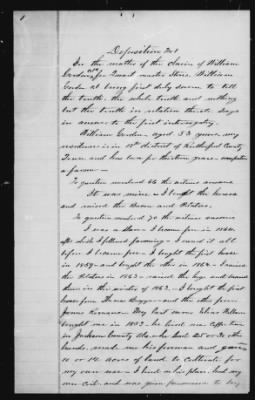 1
Deposition No 1
In the matter of the claim of William
Gordon for Quart master Stores. William
Gordon col being first duly sworn to tell
the truth, the whole truth and nothing
but the truth in relation thereto says
in answer to the first interrogatory.
William Gordon aged 53 years, my
residence is in 10th district of Rutherford County
Tenn and has been for thirteen years - occupation
a farmer —
To question numbered 66 the witness answers
It was mine & I bought the horses
and raised the Bacon and Potatoes.
To question numbered 70 the witness answers
I was a slave. I became free in 1864.
after which I followed farming. I owned it all
before I became free. I bought the first horse
in 1859 - and bought the other in 1862. I raised
the Potatoes in 1863 - raised the hogs and
them in the winter of 1863. I bought the first
horse from Thomas and the other from
James My last owner
bought me in 1853 - he lived
in Jackson County Ala. who had 25 or 30 other
hands, made me his foreman and gave
10 or 12 Acres of land to cultivate for
my own use. I lived on his place, had my
own and was given permission to buy